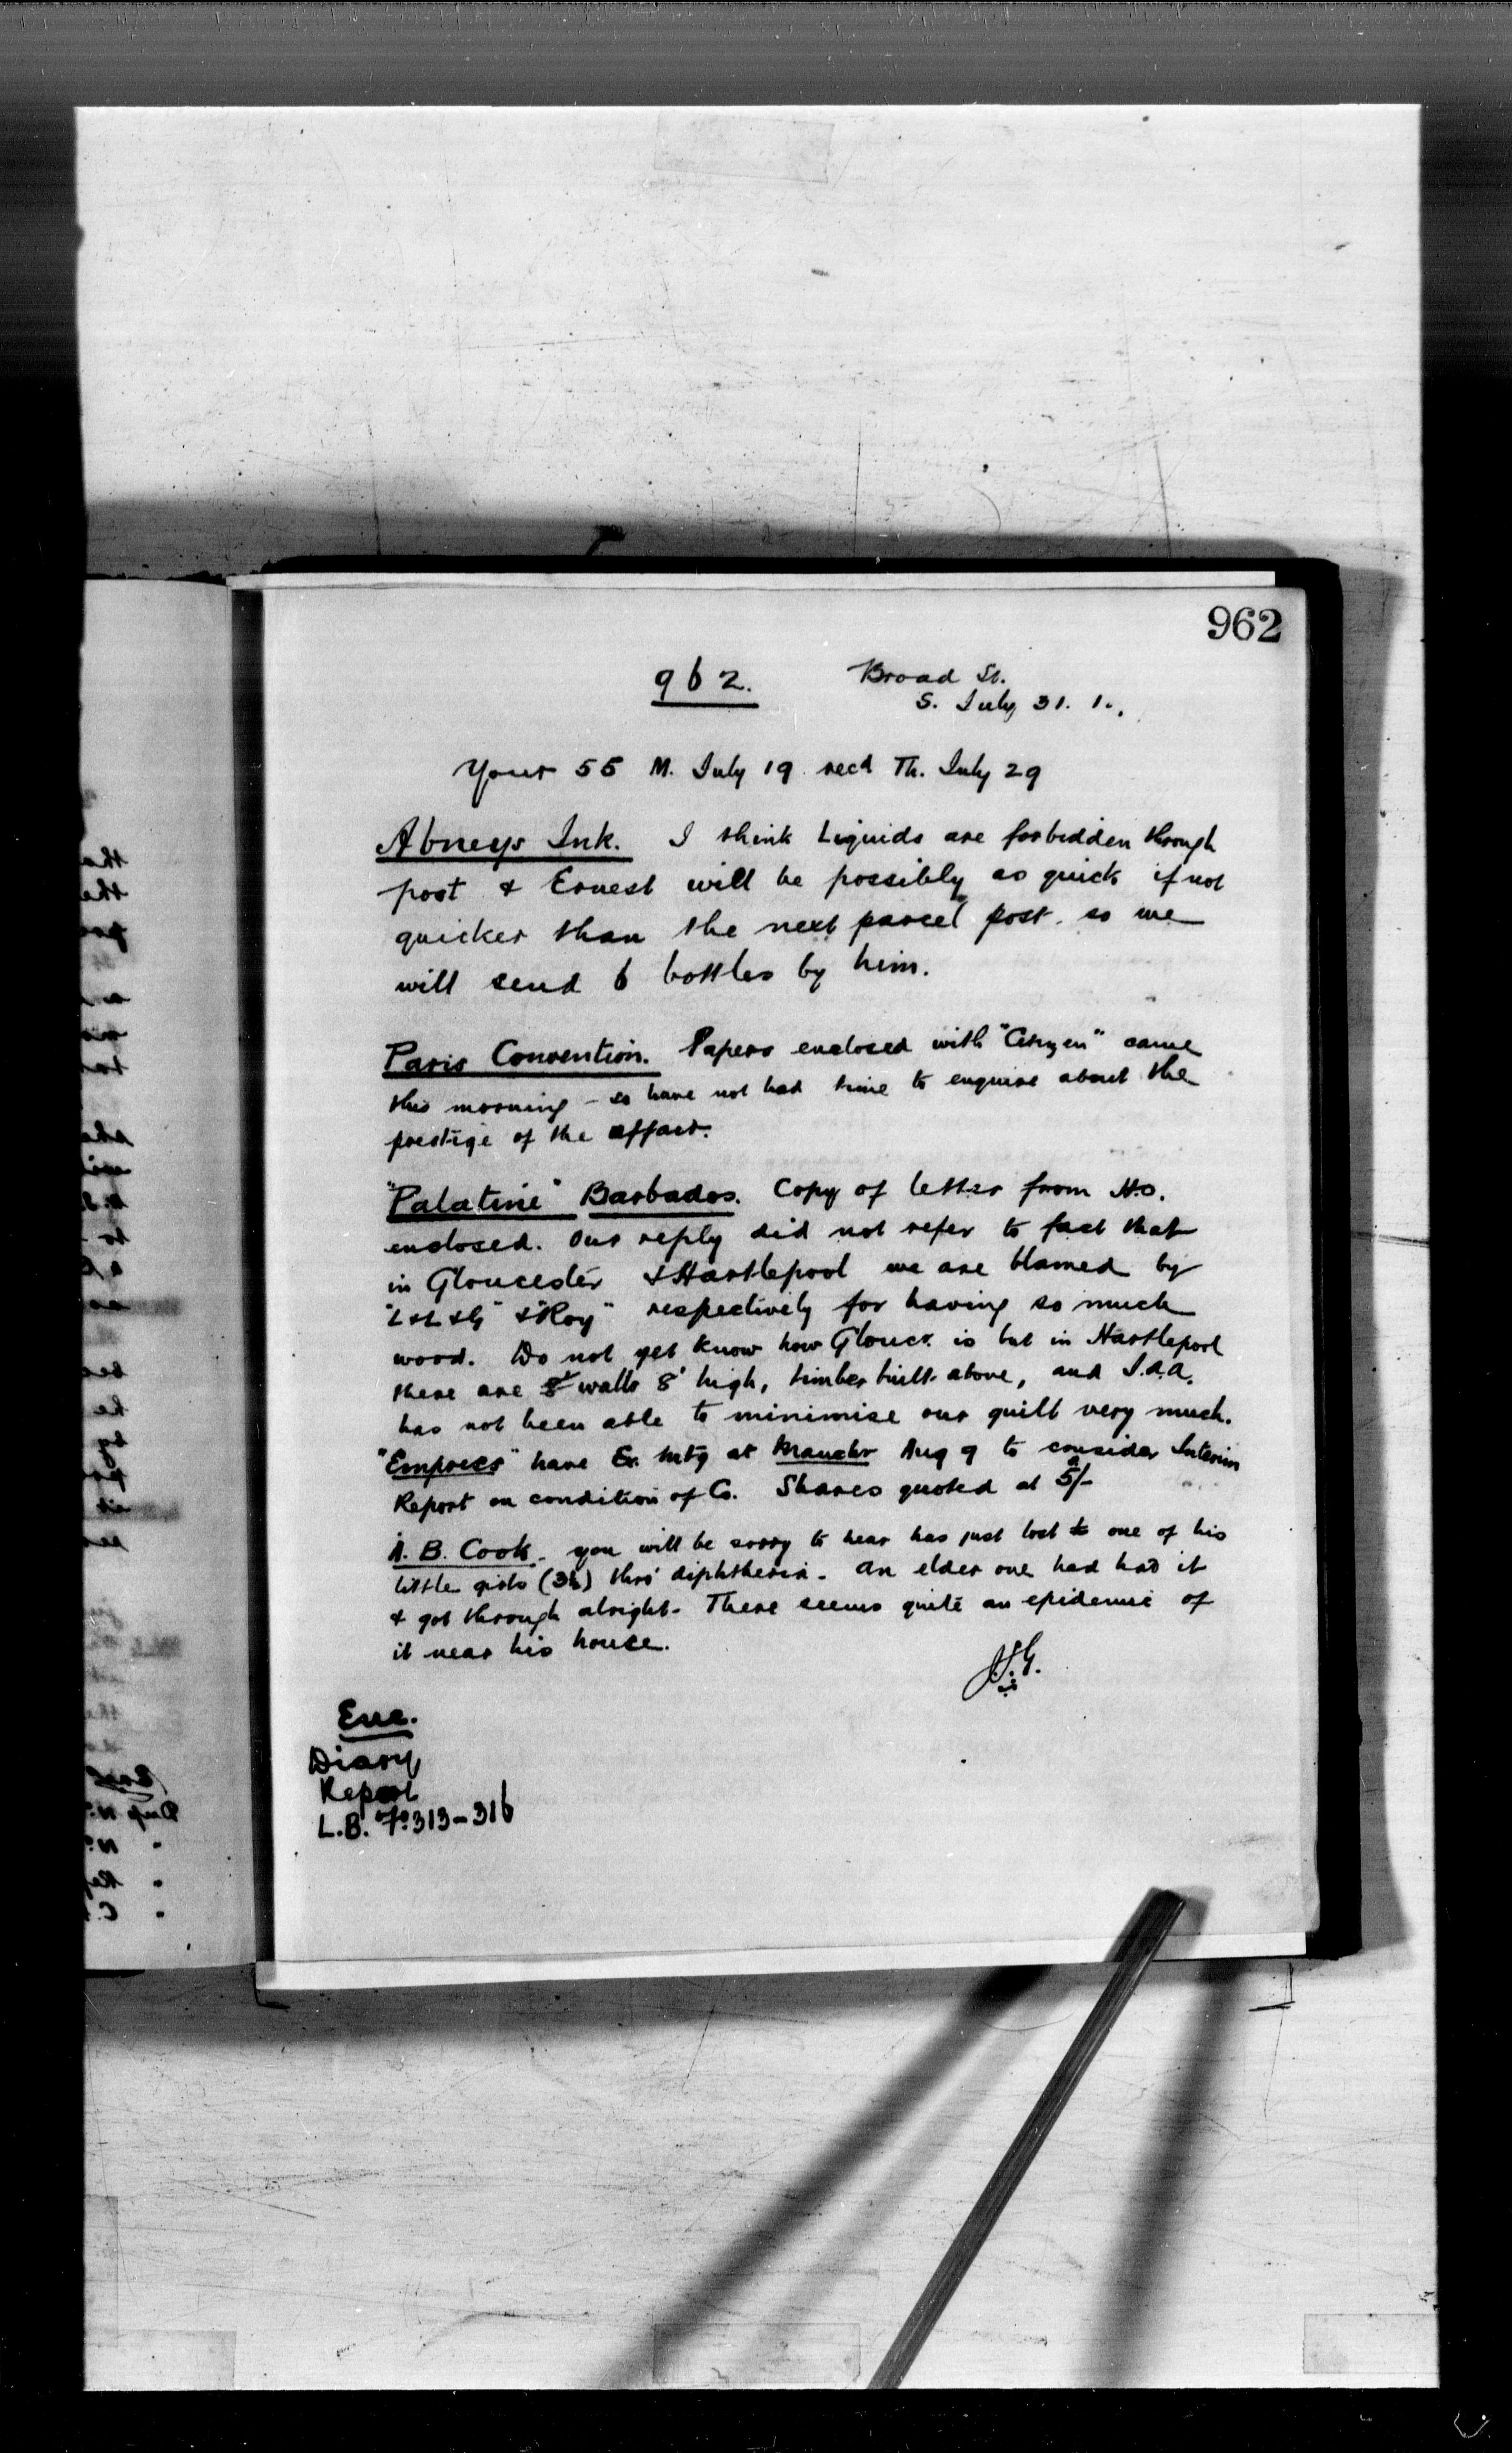 962
962.
Broad St.
S. July 31. 1..
Your 55 M. July 19 recd Th. July 29
Abneys Ink. I think Liquids are forbidden through
post & Ernest will be possibly as quick if not
quicker than the next parcel post. so we
will send 6 bottles by him.
Paris Convention. Papers enclosed with "Citizen" came
this morning - so have not had time to enquire about the
prestige of the affair.
"Palatine" Barbados. Copy of letter from H.O.
enclosed. Our reply did not refer to fact that
in Gloucester & Hartlepool we are blamed by
"L&L&G" & "Roy" respectively for having so much
wood. Do not yet know how Glouc. is but in Hartlepool
there are walls 8' high, timber built above, and J.A.A.
has not been able to minimise our guilt very much.
"Empress" have Ex. Mtg at Manchr Aug 9 to consider Interim
Report on condition of Co. Shares quoted at 5/-
A. B. Cook. you will be sorry to hear has just lost one of his
little girls (3½) thro' diphtheria. An elder one had had it
& got through alright. There seems quite an epidemic of
it near his house.
J.G.
Enc.
Diary
Report
L.B. 7º 313-316